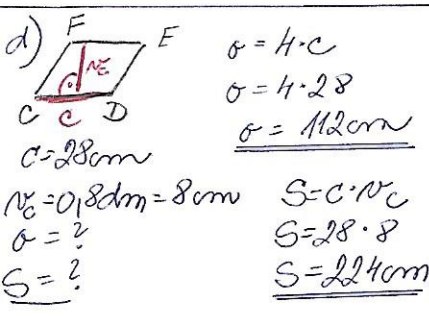 d)
F E
v_c
C c D
c=28cm
v_c=0,8dm=8cm
o=?
S=?
o=4·c
o=4·28
o=112cm
S=c·v_c
S=28·8
S=224cm